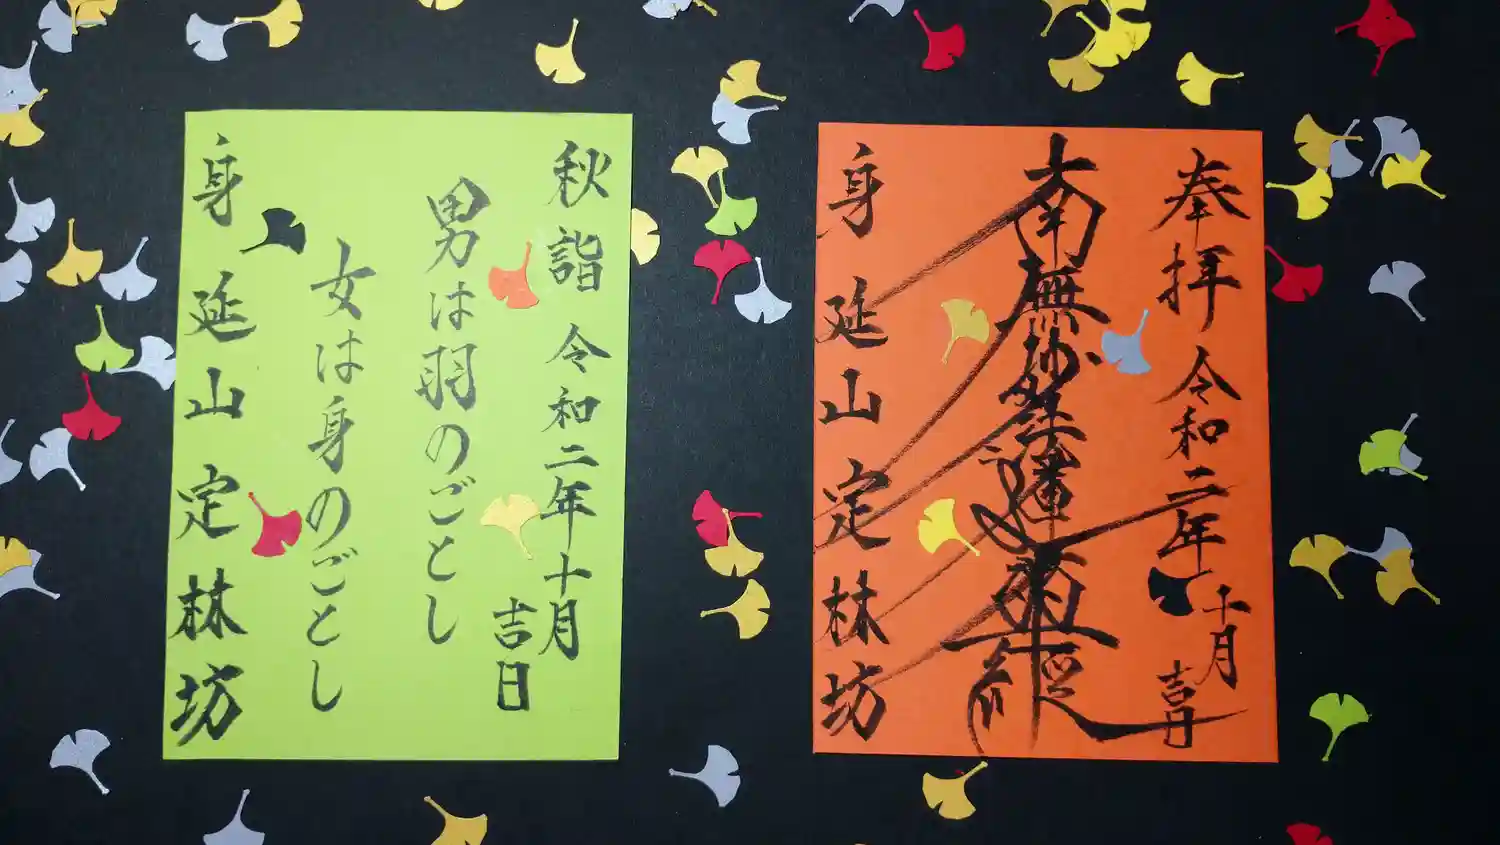 奉拝 令和二年十月
吉日
南無妙法蓮華經
身延山 定林坊
秋詣 令和二年十月
吉日
男は羽のごとし
女は身のごとし
身延山 定林坊